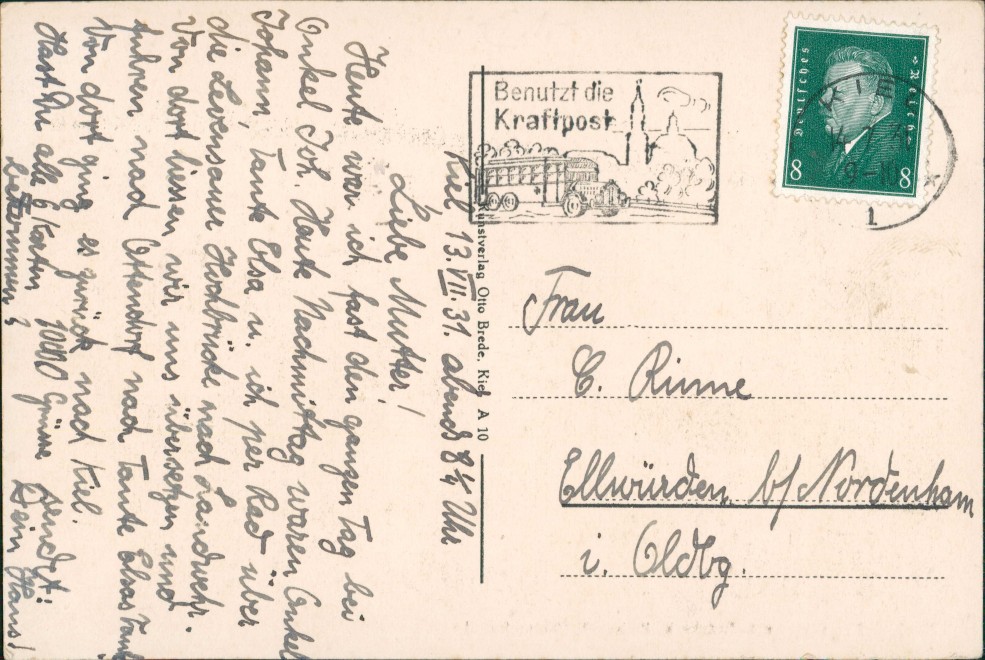 Kiel 13.VII.31. abends 8¼ Uhr
Liebe Mutter!
Heute war ich fast den ganzen Tag bei
Onkel Joh. Heute Nachmittag waren Onkel
Johann Tante Elsa u. ich per Rad über
die Levensauer Hochbrücke nach Landwehr.
Von dort liessen wir uns übersetzen und
fuhren nach Ottendorf nach Tante Elsas Tante
Von dort ging es zurück nach Kiel.
Hast Du alle Karten 1000 Grüsse sendet:
bekommen? Dein Hans!
Kunstverlag Otto Brede, Kiel A 10
Benutzt die
Kraftpost
Deutsches Reich
8 8
KIEL
1
Frau
C. Rinne
Ellwürden b/Nordenham
i. Oldbg.